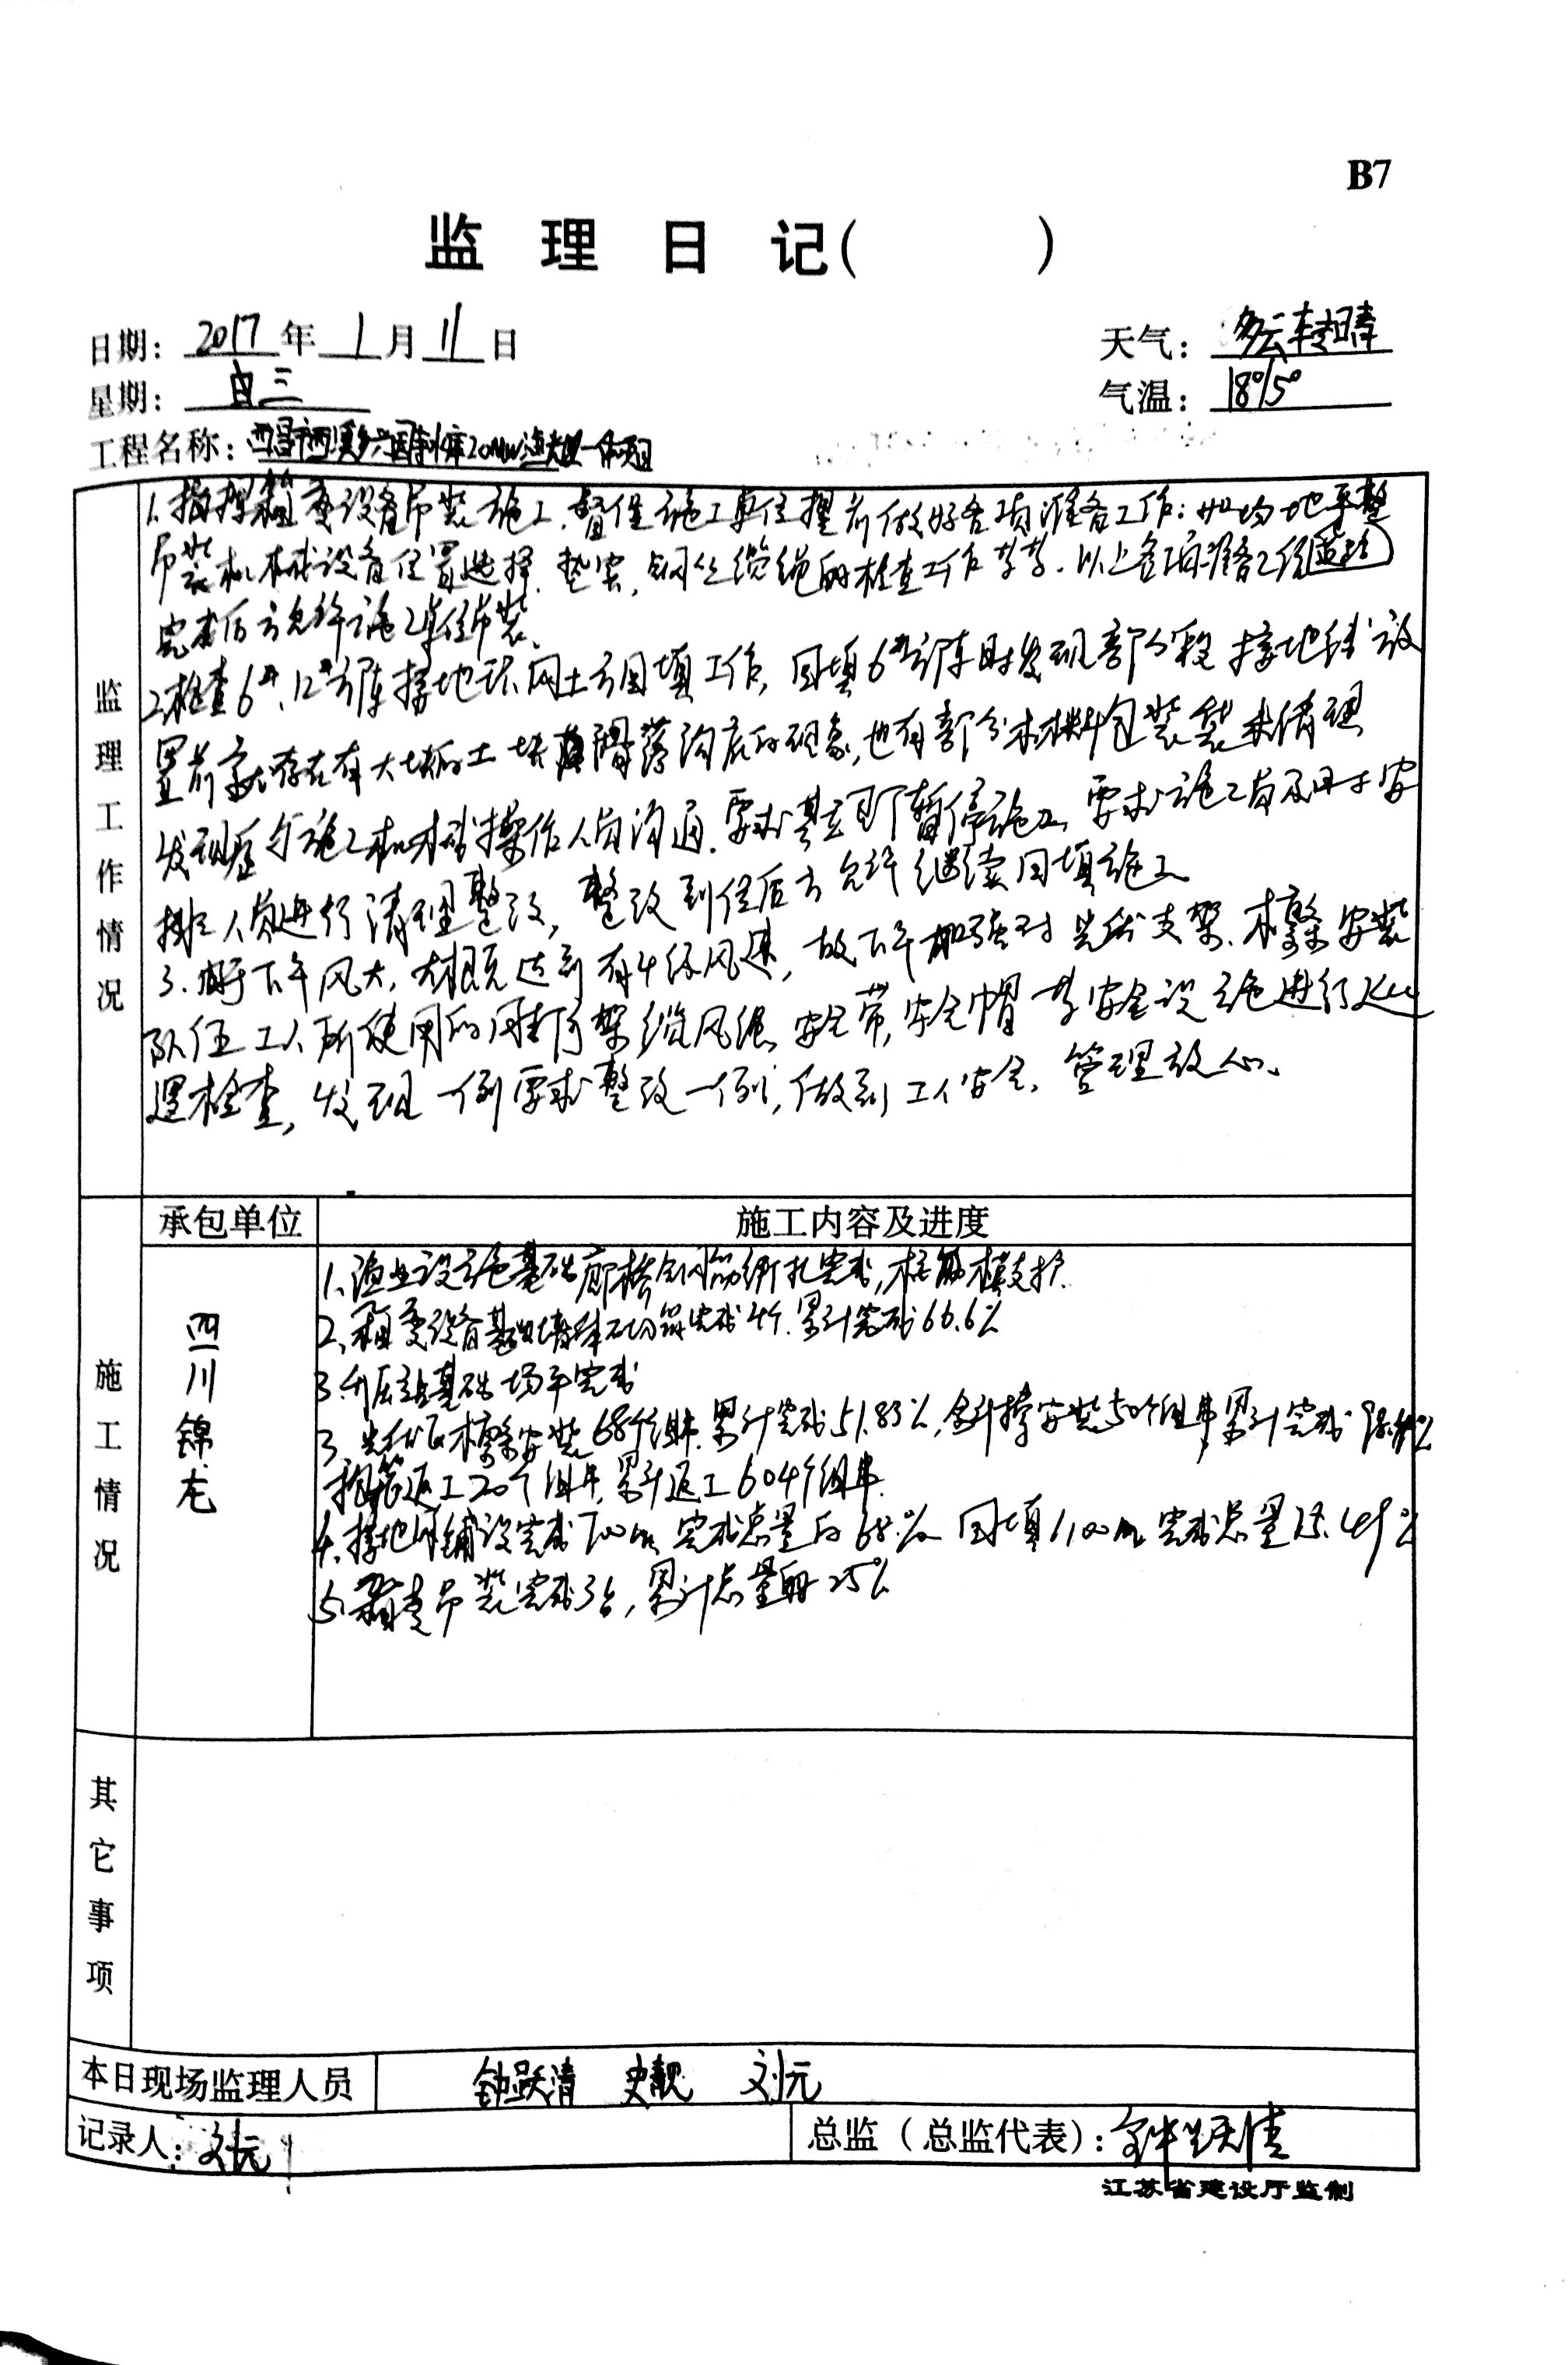 B7
监理日记(　　)
日期: 2017年1月11日
天气: 多云转晴
星期: 三
气温: 18°/5°
工程名称: 西昌市西溪乡兴国寺水库20MW渔光一体项目
监理工作情况
1.指挥箱变设备吊装施工,督促施工单位提前做好各项准备工作:如场地平整
吊装机械设备位置选择、垫实,钢丝缆绳的检查工作等等.以上各项准备工作
完成后方允许施工单位吊装、
2.检查6#、12#方阵接地环网土方回填工作,回填6#方阵时发现部分段接地线放
置前存在有大块的土块滑落沟底的现象,也有部分材料包装袋未清理
发现后与施工机械操作人员沟通.要求其立即暂停施工,要求施工员及时安
排人员进行清理整改,整改到位后方允许继续回填施工
3.由于下午风大,大概达到有4级风速,故下午加强对光伏支架、檩条安装
队伍工人所使用的脚手架缆风绳、安全带,安全帽等安全设施进行
检查,发现一例要求整改一例,做到工人安全、管理放心、
施工情况
承包单位
施工内容及进度
四川锦龙
1、渔业设施基础廊桥钢筋绑扎完成,模支护.
2、箱变设备基础墙体砌筑完成4个.累计完成66.6%
3.升压站基础场平完成
3、光伏区檩条安装68个组串.累计完成51.83%,斜撑安装50个组串累计完成
抱箍返工20个组串,累计返工604个组串.
4、接地铺设完成700m 完成总量的68.% 回填1100m 完成总量
5.箱变吊装完成3台,累计总量的25%
其它事项
本日现场监理人员
钟跃清 史靓 刘元
记录人: 刘元
总监(总监代表): 钟跃清
江苏省建设厅监制